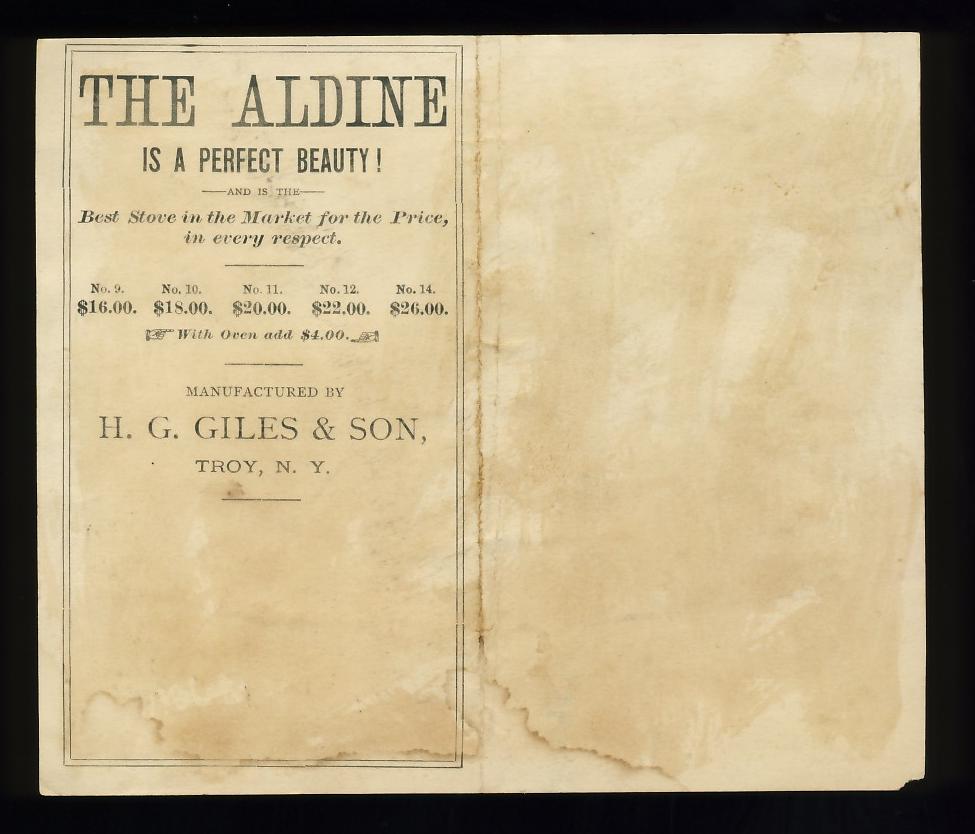 THE ALDINE
IS A PERFECT BEAUTY!
AND IS THE
Best Stove in the Market for the Price,
in every respect.
No. 9. No. 10. No. 11. No. 12. No. 14.
$16.00. $18.00. $20.00. $22.00. $26.00.
With Oven add $4.00.
MANUFACTURED BY
H. G. GILES & SON,
TROY, N. Y.